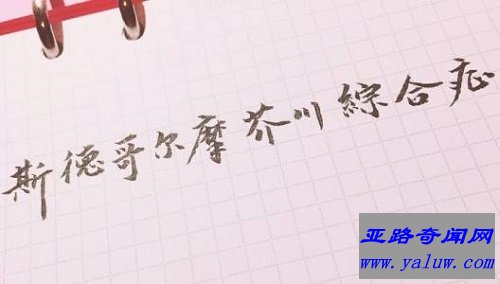 斯德哥尔摩芥川綜合症
亚路奇闻网
www.yaluw.com